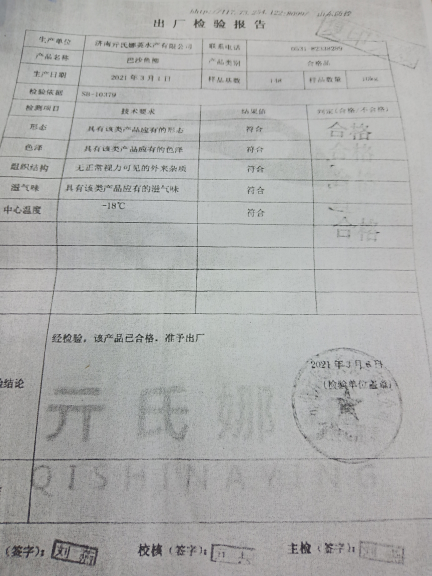 出厂检验报告
生产单位 济南亓氏娜英水产有限公司 联系电话
产品名称 巴沙鱼柳 产品类别 合格证
生产日期 2021年3月1日 样品基数 样品数量
检验依据
检测项目 技术要求 结果值 判定(合格/不合格)
形态 具有该类产品应有的形态 符合 合格
色泽 具有该类产品应有的色泽 符合 合格
组织结构 无正常视力可见的外来杂质 符合
滋气味 具有该类产品应有的滋气味 符合
中心温度 -18℃ 符合 合格
经检验，该产品已合格，准予出厂
2021年3月6日
验结论 (检验单位盖章)
亓氏娜
QISHINAYING
(签字): 校核(签字): 主检(签字):